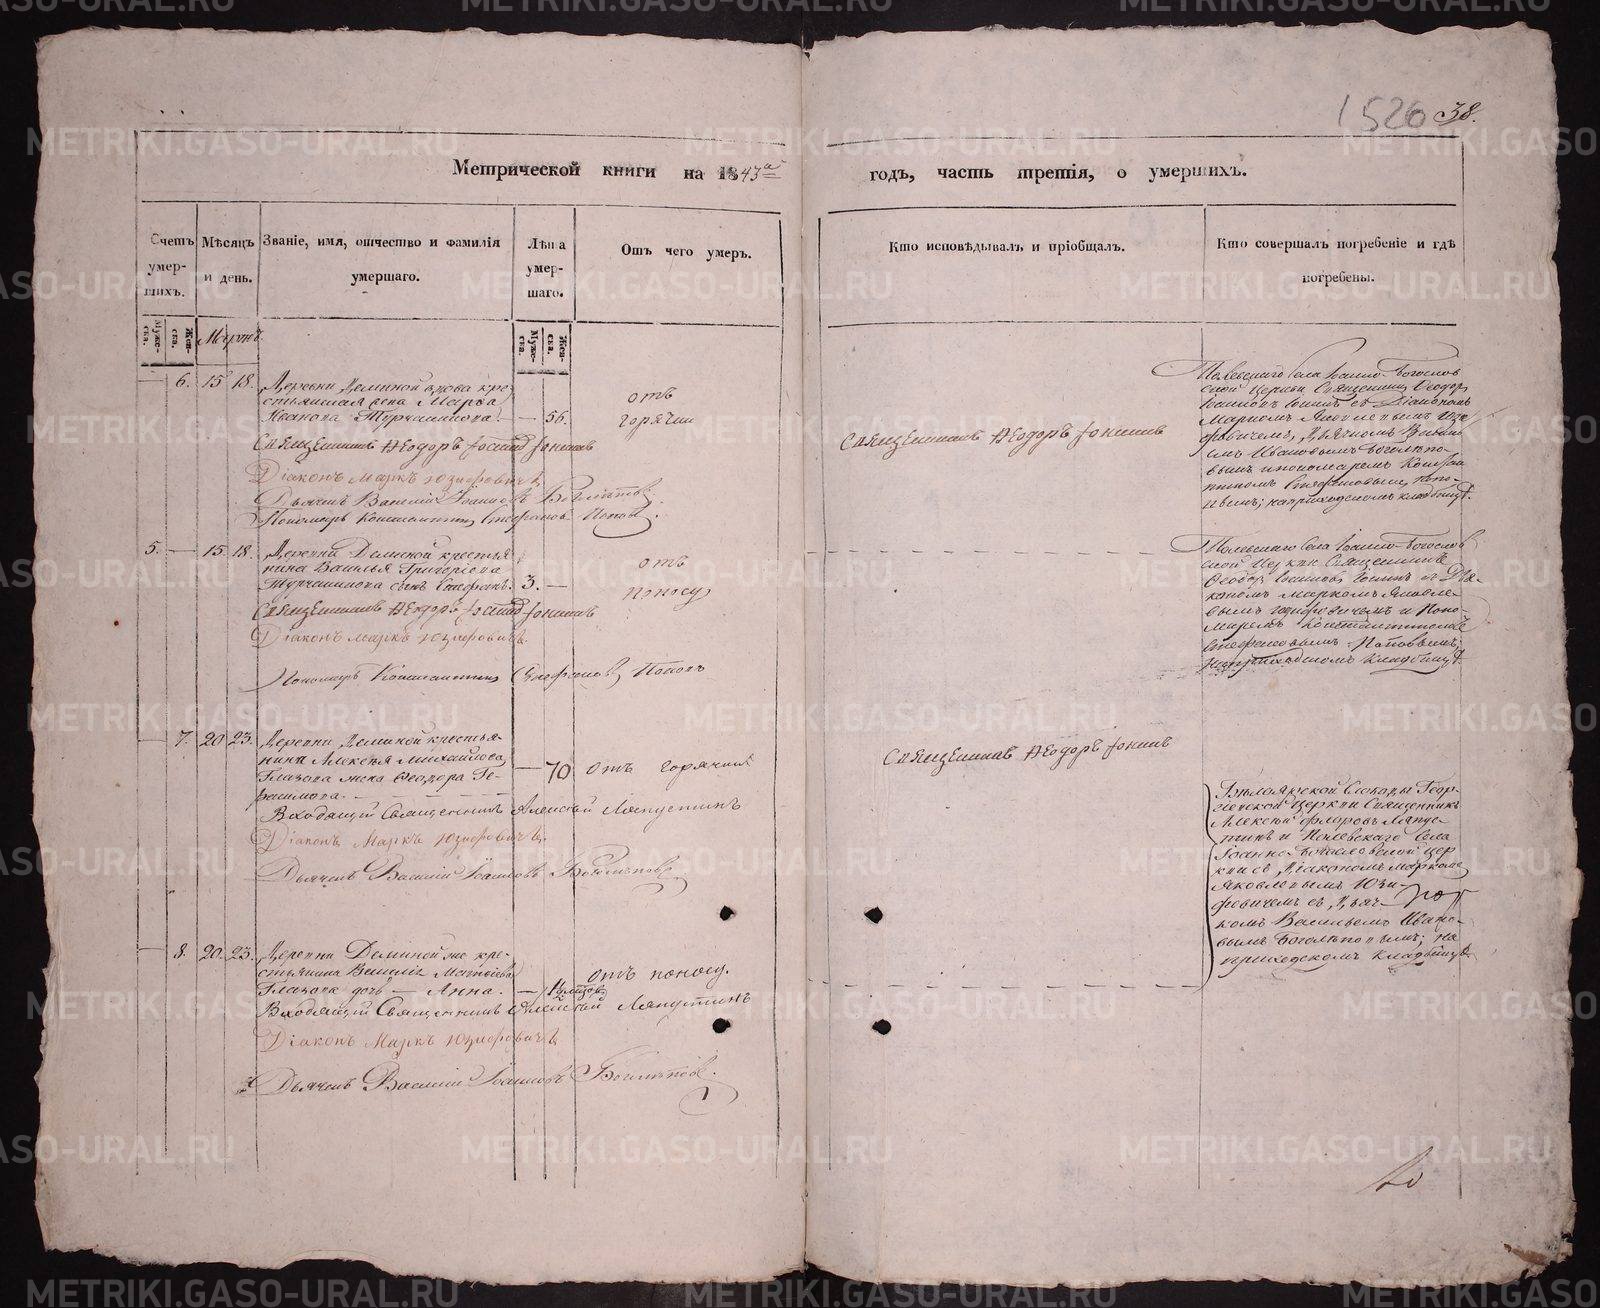 1526 38.
Метрической книги на 1843й
годъ, часть третія, о умершихъ.
Счетъ умер-шихъ.
Мѣсяцъ и день.
Званіе, имя, отчество и фамилія умершаго.
Лѣта умер-шаго.
Отъ чего умеръ.
Кто исповѣдывалъ и пріобщалъ.
Кто совершалъ погребеніе и гдѣ погребены.
Муже-ска.
Жен-ска.
Мартъ.
Муже-ска.
Жен-ска.
— 6. 15 18. Деревни Деминой вдова кре-
стьянская жена Марѳа
Иванова Турчанинова. — 56.
отъ
горячки
Священникъ Ѳеодоръ Іоанновъ Іонинъ
Діаконъ Маркъ Юзифовичъ
Дьячекъ Василій Іоанновъ Боголѣповъ
Пономарь Константинъ Стефановъ Поповъ.
Священникъ Ѳеодоръ Іонинъ
Полевскаго Села Іоанно-Богослов
ской Церкви Священникъ Ѳеодоръ
Іоанновъ Іонинъ съ Діакономъ
Маркомъ Яковлевымъ Юзи-
фовичемъ, Дьячкомъ Василь
емъ Ивановымъ Боголѣпо-
вымъ и пономаремъ Констан
тиномъ Стефановымъ Попо-
вымъ; на приходскомъ кладбищѣ.
5. — 15. 18. Деревни Деминой крестья
нина Василья Григорьева
Турчанинова сынъ Стефанъ. 3. —
отъ
поносу
Священникъ Ѳеодоръ Іоанновъ Іонинъ
Діаконъ Маркъ Юзифовичъ.
Пономарь Константинъ Стефановъ Поповъ
Полевскаго Села Іоанно-Богослов
ской Церкви Священникъ
Ѳеодоръ Іоанновъ Іонинъ съ Діа-
кономъ Маркомъ Яковле-
вымъ Юзифовичемъ и Поно-
маремъ Константиномъ
Стефановымъ Поповымъ;
на приходскомъ кладбищѣ.
— 7. 20 23. Деревни Деминой крестья-
нина Алексѣя Михайлова
Глазова жена Ѳеодора Ге-
расимова. — 70 отъ горячки
Входящій Священникъ Алексѣй Ляпустинъ
Діаконъ Маркъ Юзифовичъ.
Дьячекъ Василій Іоанновъ Боголѣповъ
Священникъ Ѳеодоръ Іонинъ
Бѣлоярской Слободы Геор-
гіевской церкви Священникъ
Алексѣй Флоровъ Ляпус-
тинъ и Полевскаго Села
Іоанно-Богословской цер
кви съ Діакономъ Маркомъ
Яковлевымъ Юзи-
фовичемъ съ Дьяч-
комъ Васильемъ Ивано-
вымъ Боголѣповымъ; на
приходскомъ кладбищѣ
— 8. 20. 23. Деревни Деминой же кре-
стьянина Василія Матвѣева
Глазова дочь — Анна. —
отъ поносу.
Входящій Священникъ Алексѣй Ляпустинъ
Діаконъ Маркъ Юзифовичъ
Дьячекъ Василій Іоанновъ Боголѣповъ.
METRIKI.GASO-URAL.RU